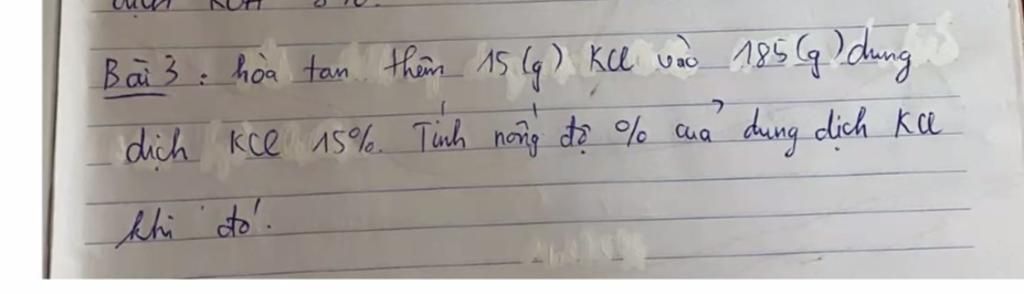 Bài 3 : hòa tan thêm 15 (g) KCl vào 185 (g) dung
dịch KCl 15%. Tính nồng độ % của dung dịch KCl
khi đó.